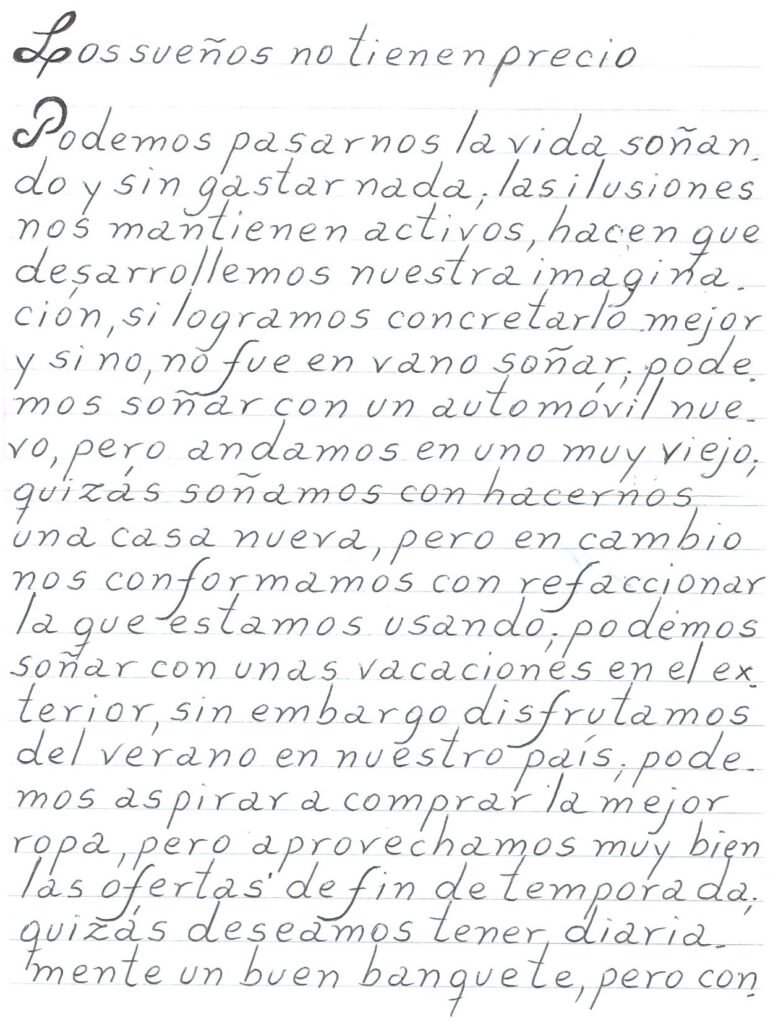 Los sueños no tienen precio
Podemos pasarnos la vida soñan-
do y sin gastar nada; las ilusiones
nos mantienen activos, hacen que
desarrollemos nuestra imagina-
ción, si logramos concretarlo mejor
y si no, no fue en vano soñar; pode-
mos soñar con un automóvil nue-
vo, pero andamos en uno muy viejo;
quizás soñamos con hacernos
una casa nueva, pero en cambio
nos conformamos con refaccionar
la que estamos usando; podemos
soñar con unas vacaciones en el ex-
terior, sin embargo disfrutamos
del verano en nuestro país; pode-
mos aspirar a comprar la mejor
ropa, pero aprovechamos muy bien
las ofertas de fin de temporada;
quizás deseamos tener diaria-
mente un buen banquete, pero con-